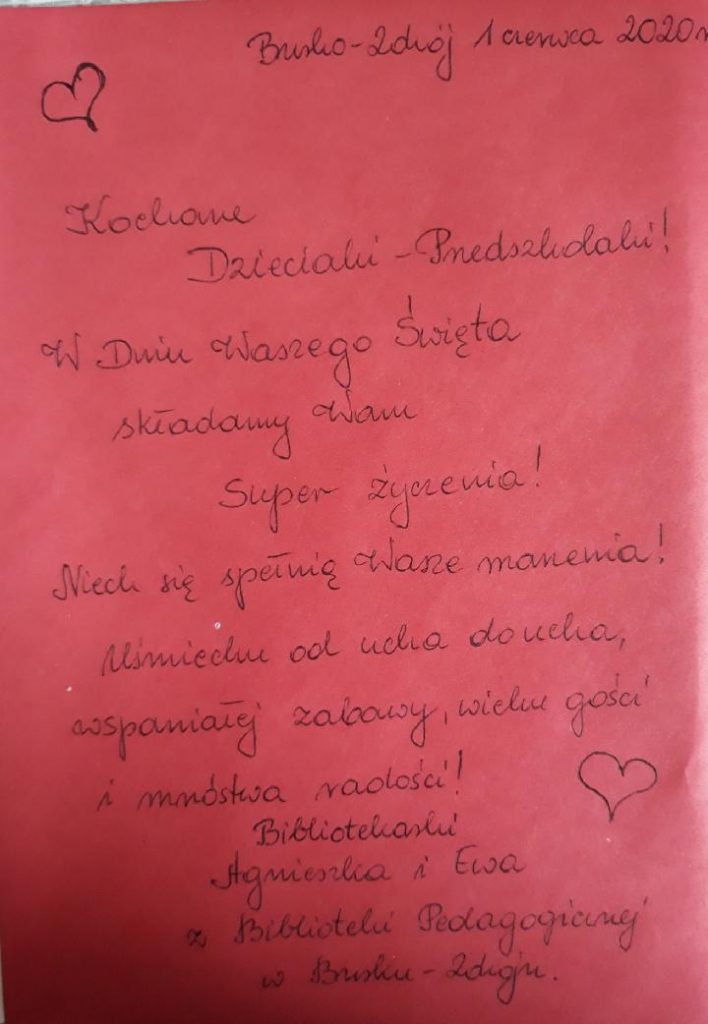 Busko-Zdrój 1 czerwca 2020r
Kochane
Dzieciaki - Przedszkolaki!
W Dniu Waszego Święta
składamy Wam
Super życzenia!
Niech się spełnią Wasze marzenia!
Uśmiechu od ucha do ucha,
wspaniałej zabawy, wielu gości
i mnóstwa radości!
Bibliotekarki
Agnieszka i Ewa
z Biblioteki Pedagogicznej
w Busku-Zdroju.